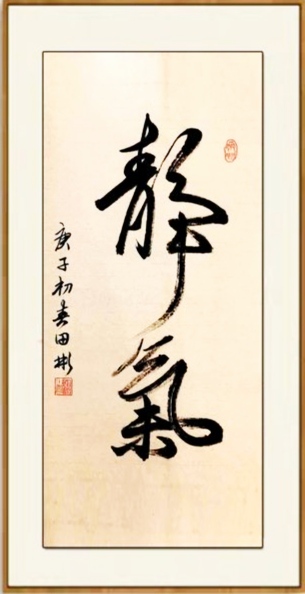 靜氣
庚子初春田彬